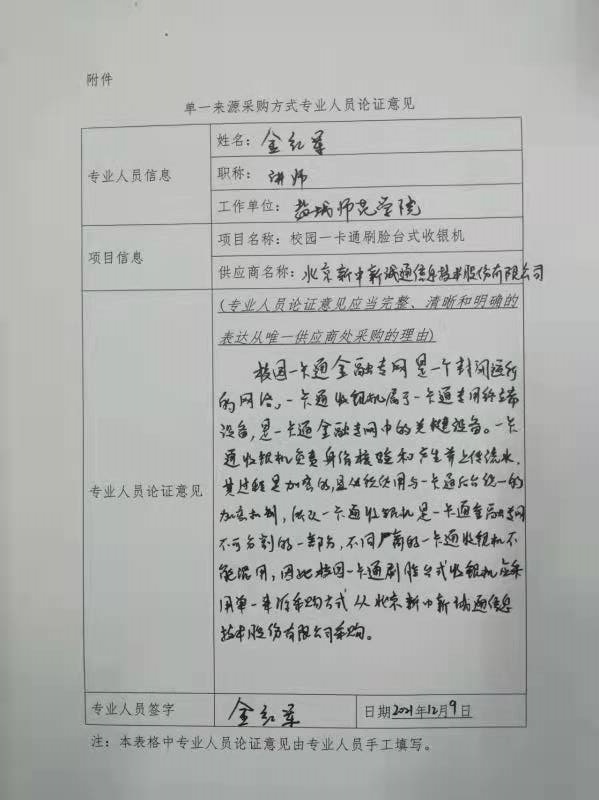 附件
单一来源采购方式专业人员论证意见
专业人员信息
姓名：金红军
职称：讲师
工作单位：盐城师范学院
项目信息
项目名称：校园一卡通刷脸台式收银机
供应商名称：北京新中新诚通信息技术股份有限公司
专业人员论证意见
(专业人员论证意见应当完整、清晰和明确的
表达从唯一供应商处采购的理由)
校园一卡通金融专网是一个封闭运行
的网络，一卡通收银机属于一卡通专用终端
设备，是一卡通金融专网中的关键设备。一卡
通收银机负责身份核验和产生并上传流水，
其过程是加密的，且必须使用与一卡通后台统一的
加密机制，所以一卡通收银机是一卡通金融专网
不可分割的一部分，不同厂商的一卡通收银机不
能混用，因此校园一卡通刷脸台式收银机应采
用单一来源采购方式从北京新中新诚通信息
技术股份有限公司采购。
专业人员签字
金红军
日期2021年12月9日
注：本表格中专业人员论证意见由专业人员手工填写。